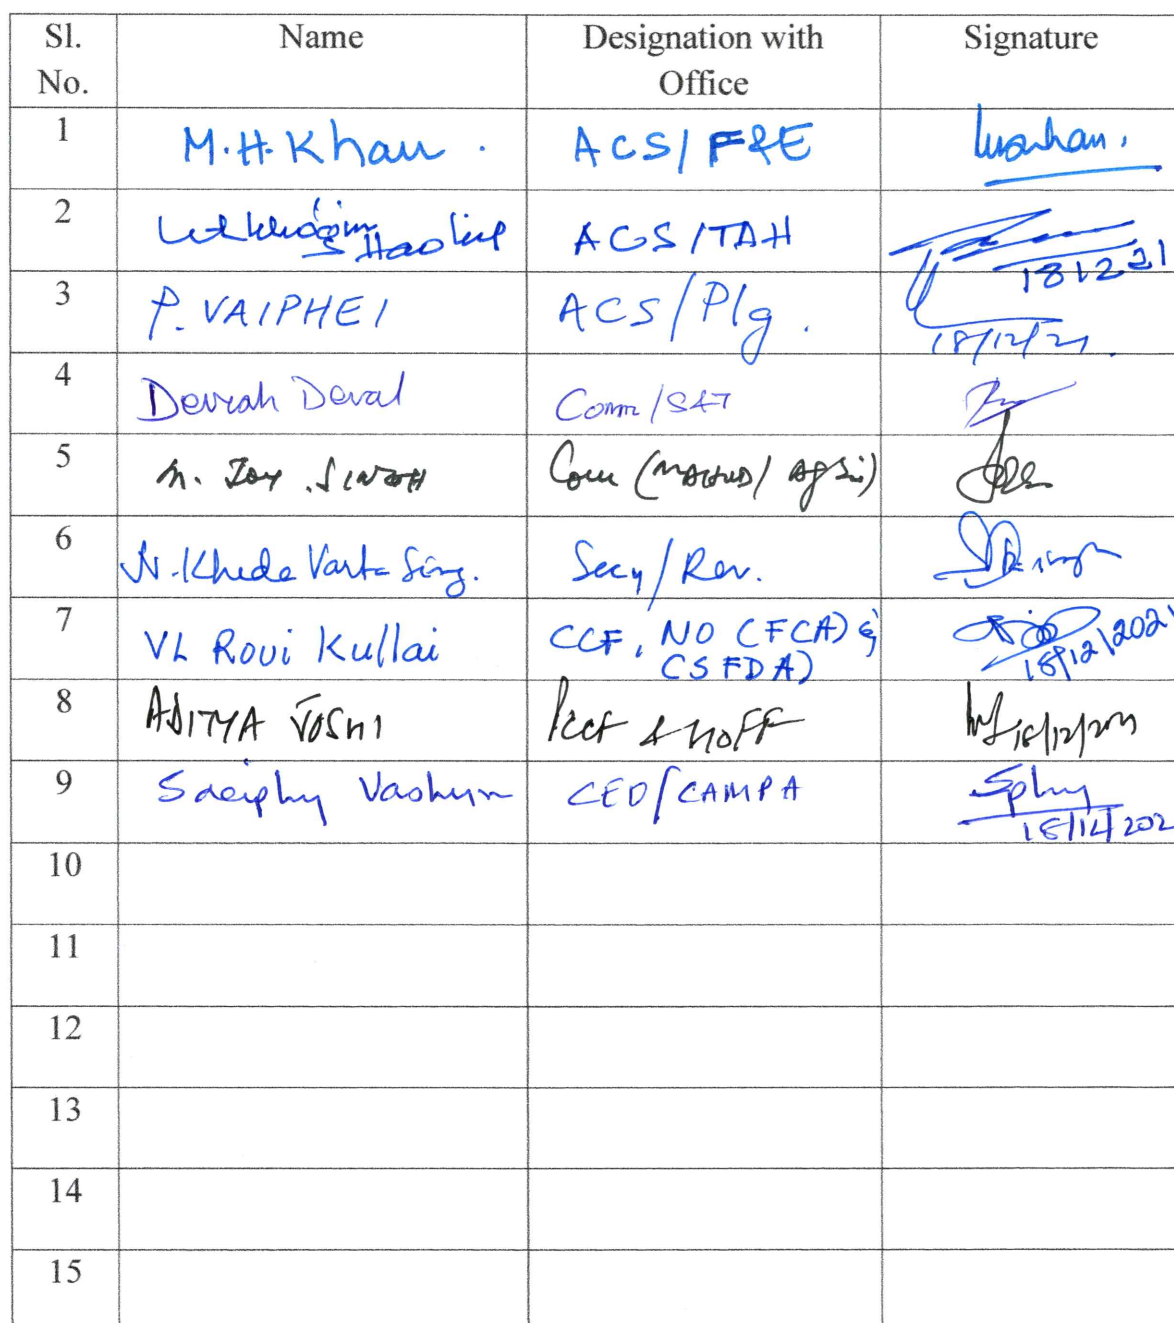 Sl. No. Name Designation with Office Signature
1 M.H. Khan. ACS/F&E
2 ACS/TAH 181221
3 P. VAIPHEI ACS/Plg. 18/12/21.
4 Devesh Deval Comm/S&T
5 M. Joy. SINGH Com (MAHUD/
6 N. Kheda Varta Sing. Secy/Rev.
7 VL Roui Kullai CCF, NO (FCA) & CSFDA) 18/12/2021
8 ADITYA JOSHI PCCF & HOFF 18/12/2021
9 Vashum CEO/CAMPA 18/12/202
10
11
12
13
14
15